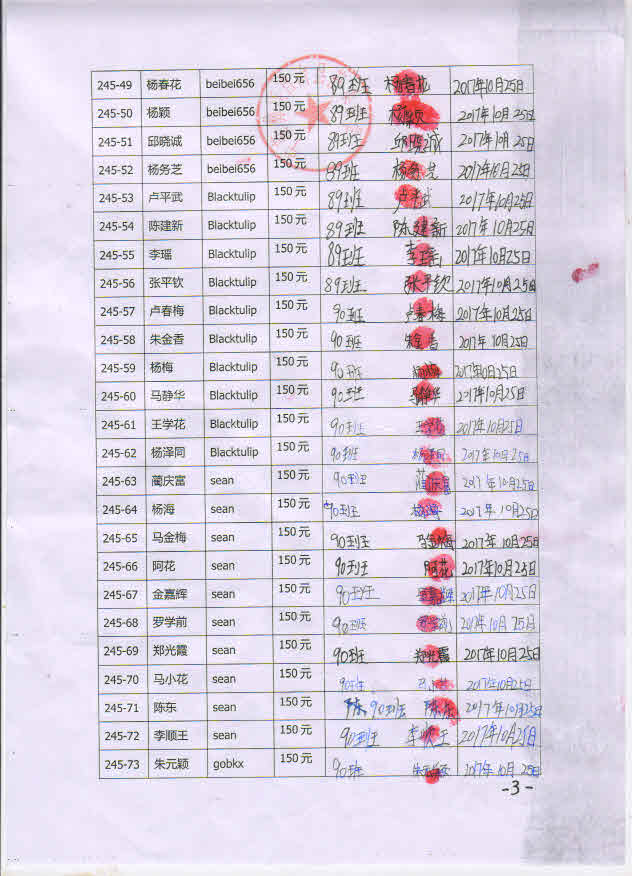 245-49 杨春花 beibei656 150元 89班 杨春花 2017年10月25日
245-50 杨颖 beibei656 150元 89班 杨颖 2017年10月25日
245-51 邱晓诚 beibei656 150元 89班 邱晓诚 2017年10月25日
245-52 杨务芝 beibei656 150元 89班 杨务芝 2017年10月25日
245-53 卢平武 Blacktulip 150元 89班 卢平武 2017年10月25日
245-54 陈建新 Blacktulip 150元 89班 陈建新 2017年10月25日
245-55 李瑶 Blacktulip 150元 89班 李瑶 2017年10月25日
245-56 张平钦 Blacktulip 150元 89班 张平钦 2017年10月25日
245-57 卢春梅 Blacktulip 150元 90班 卢春梅 2017年10月25日
245-58 朱金香 Blacktulip 150元 90班 朱金香 2017年10月25日
245-59 杨梅 Blacktulip 150元 90班 杨梅 2017年10月25日
245-60 马静华 Blacktulip 150元 90班 马静华 2017年10月25日
245-61 王学花 Blacktulip 150元 90班 王学花 2017年10月25日
245-62 杨泽同 Blacktulip 150元 90班 杨泽同 2017年10月25日
245-63 蔺庆富 sean 150元 90班 2017年10月25日
245-64 杨海 sean 150元 90班 杨海 2017年10月25日
245-65 马金梅 sean 150元 90班 马金梅 2017年10月25日
245-66 阿花 sean 150元 90班 阿花 2017年10月25日
245-67 金嘉辉 sean 150元 90班 金嘉辉 2017年10月25日
245-68 罗学前 sean 150元 90班 2017年10月25日
245-69 郑光霞 sean 150元 90班 郑光霞 2017年10月25日
245-70 马小花 sean 150元 90班 马小花 2017年10月25日
245-71 陈东 sean 150元 陈 90班 陈东 2017年10月25日
245-72 李顺王 sean 150元 90班 李顺王 2017年10月25日
245-73 朱元颖 gobkx 150元 90班 朱元颖 2017年10月25日
-3-